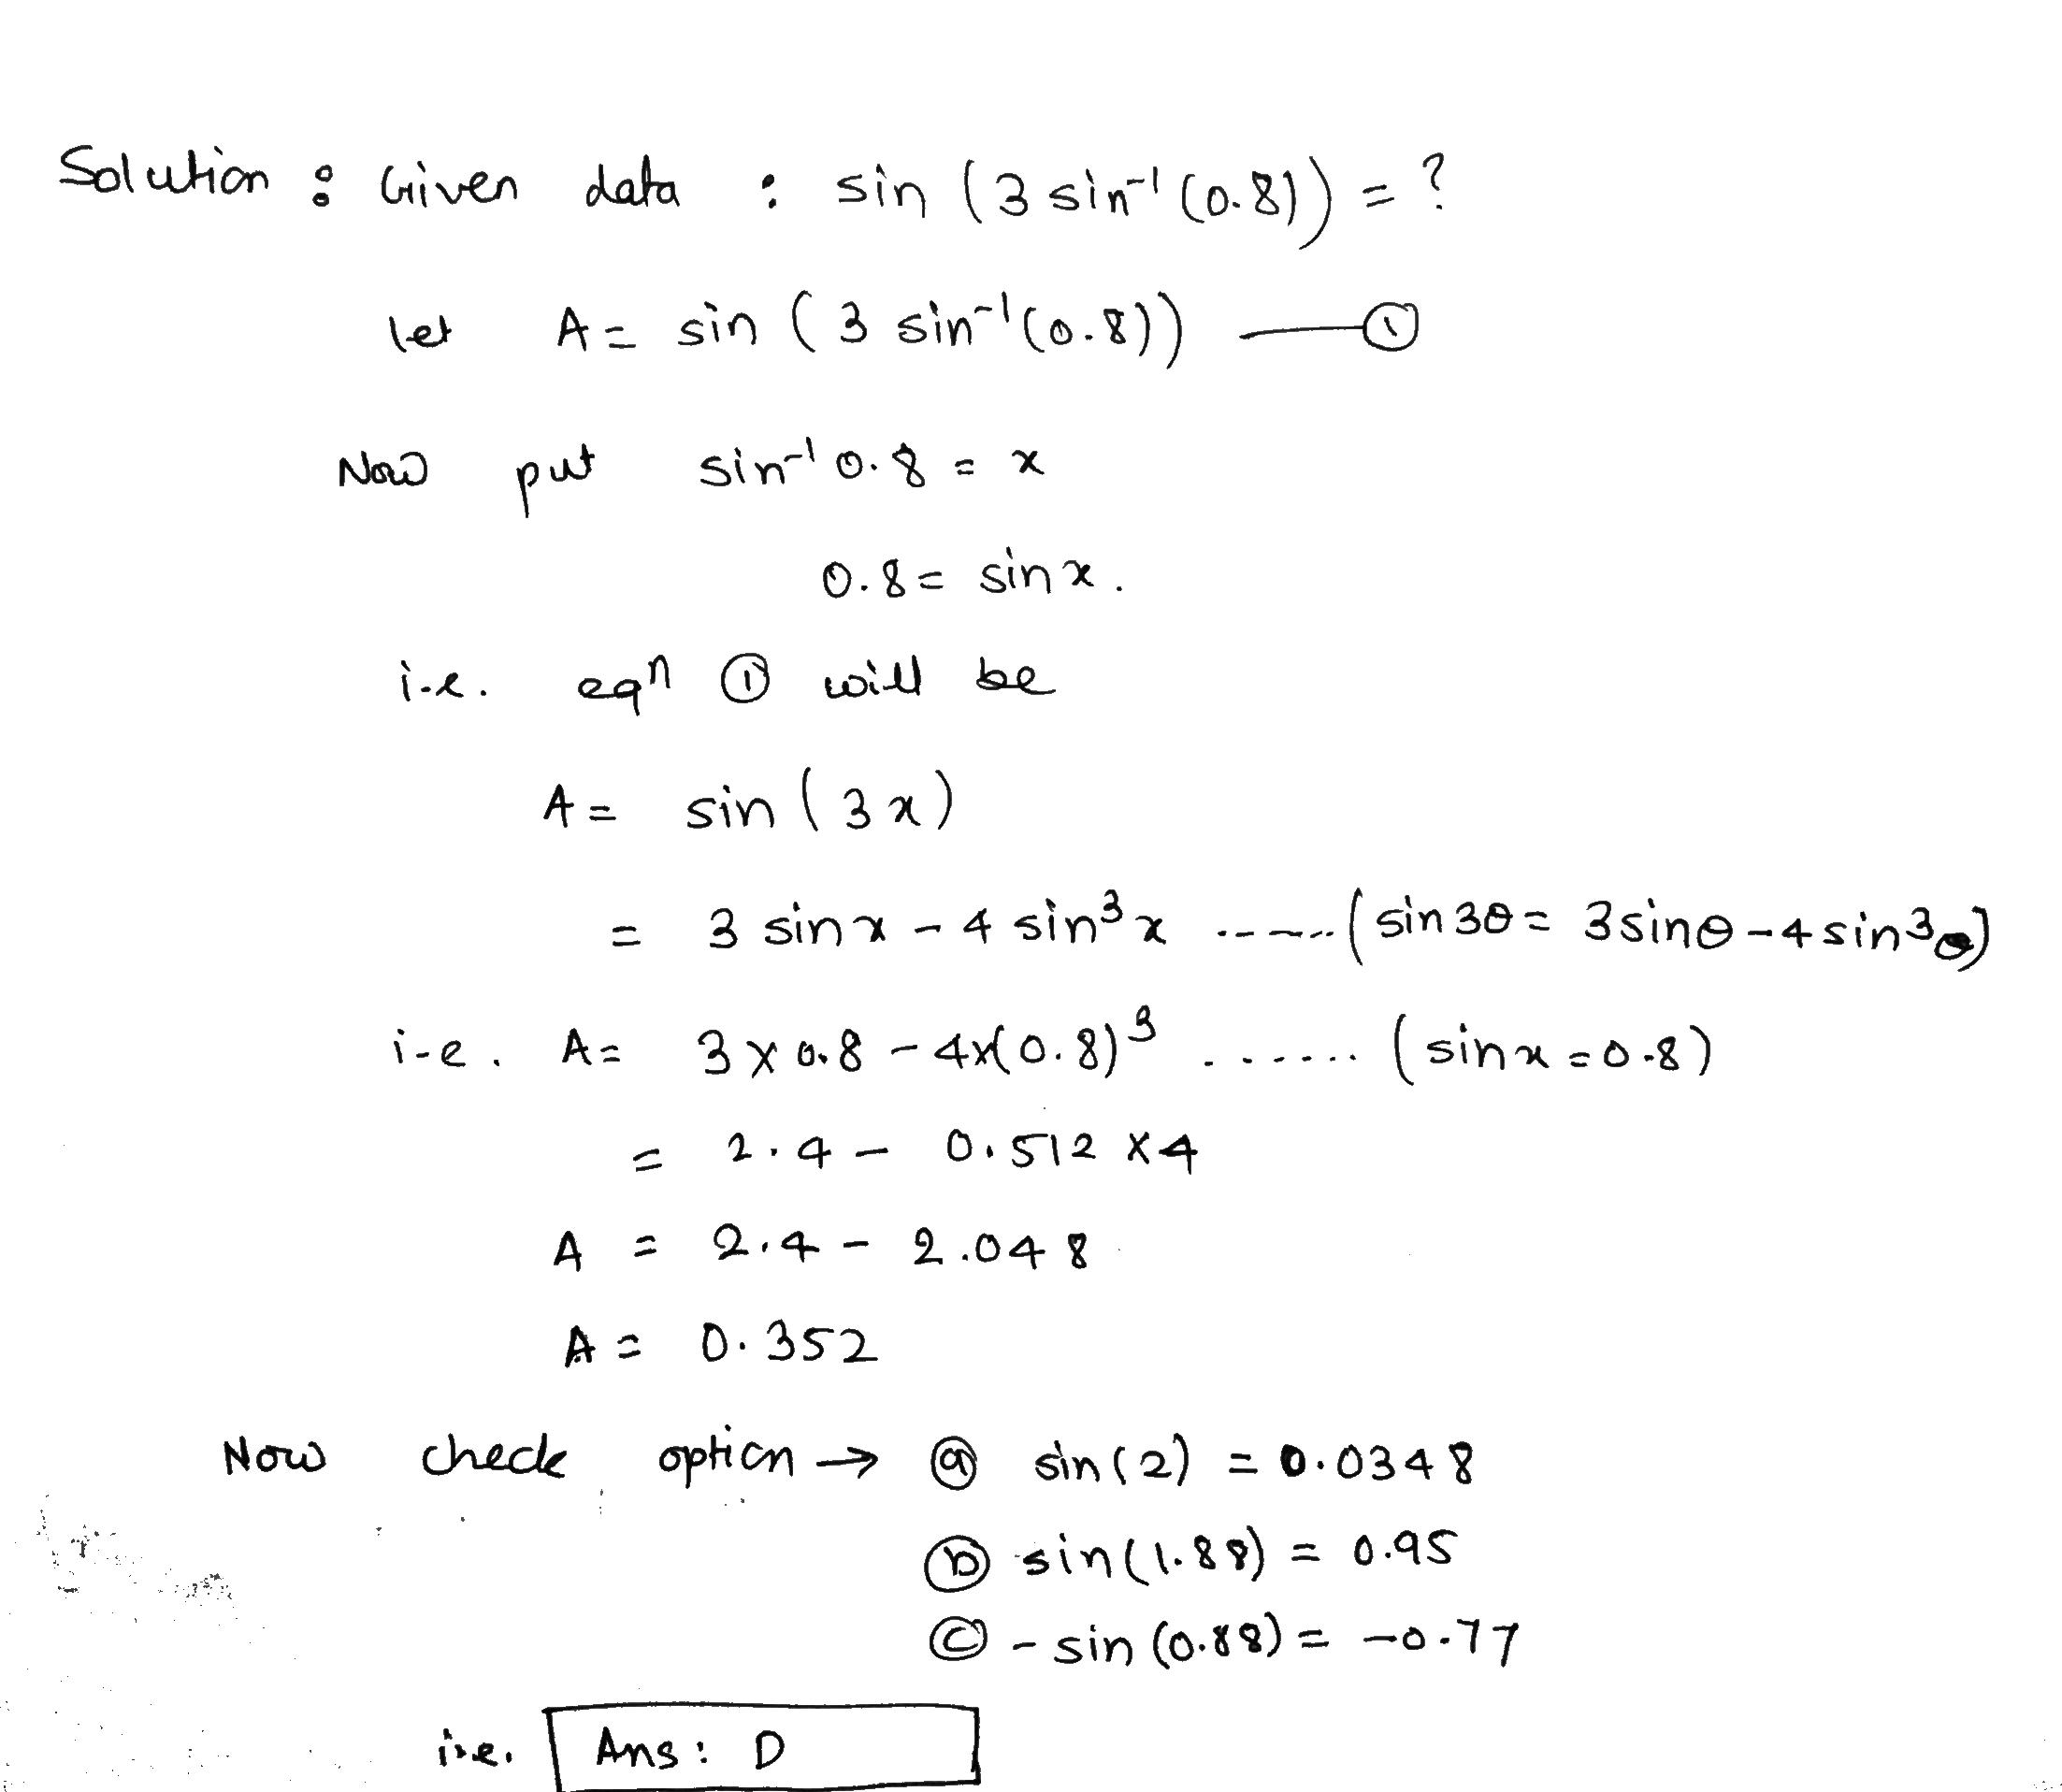 Solution : Given data : sin (3 sin⁻¹ (0.8)) = ?
let A = sin (3 sin⁻¹(0.8)) —— ①
Now put sin⁻¹ 0.8 = x
0.8 = sin x.
i.e. eqⁿ ① will be
A = sin (3x)
= 3 sin x - 4 sin³ x ------ (sin 3θ = 3 sin θ - 4 sin³ θ)
i-e. A = 3 × 0.8 - 4×(0.8)³ ...... (sin x = 0.8)
= 2.4 - 0.512 × 4
A = 2.4 - 2.048
A = 0.352
Now check option → ⓐ sin(2) = 0.0348
ⓑ sin(1.88) = 0.95
ⓒ - sin (0.88) = -0.77
i.e. Ans : D